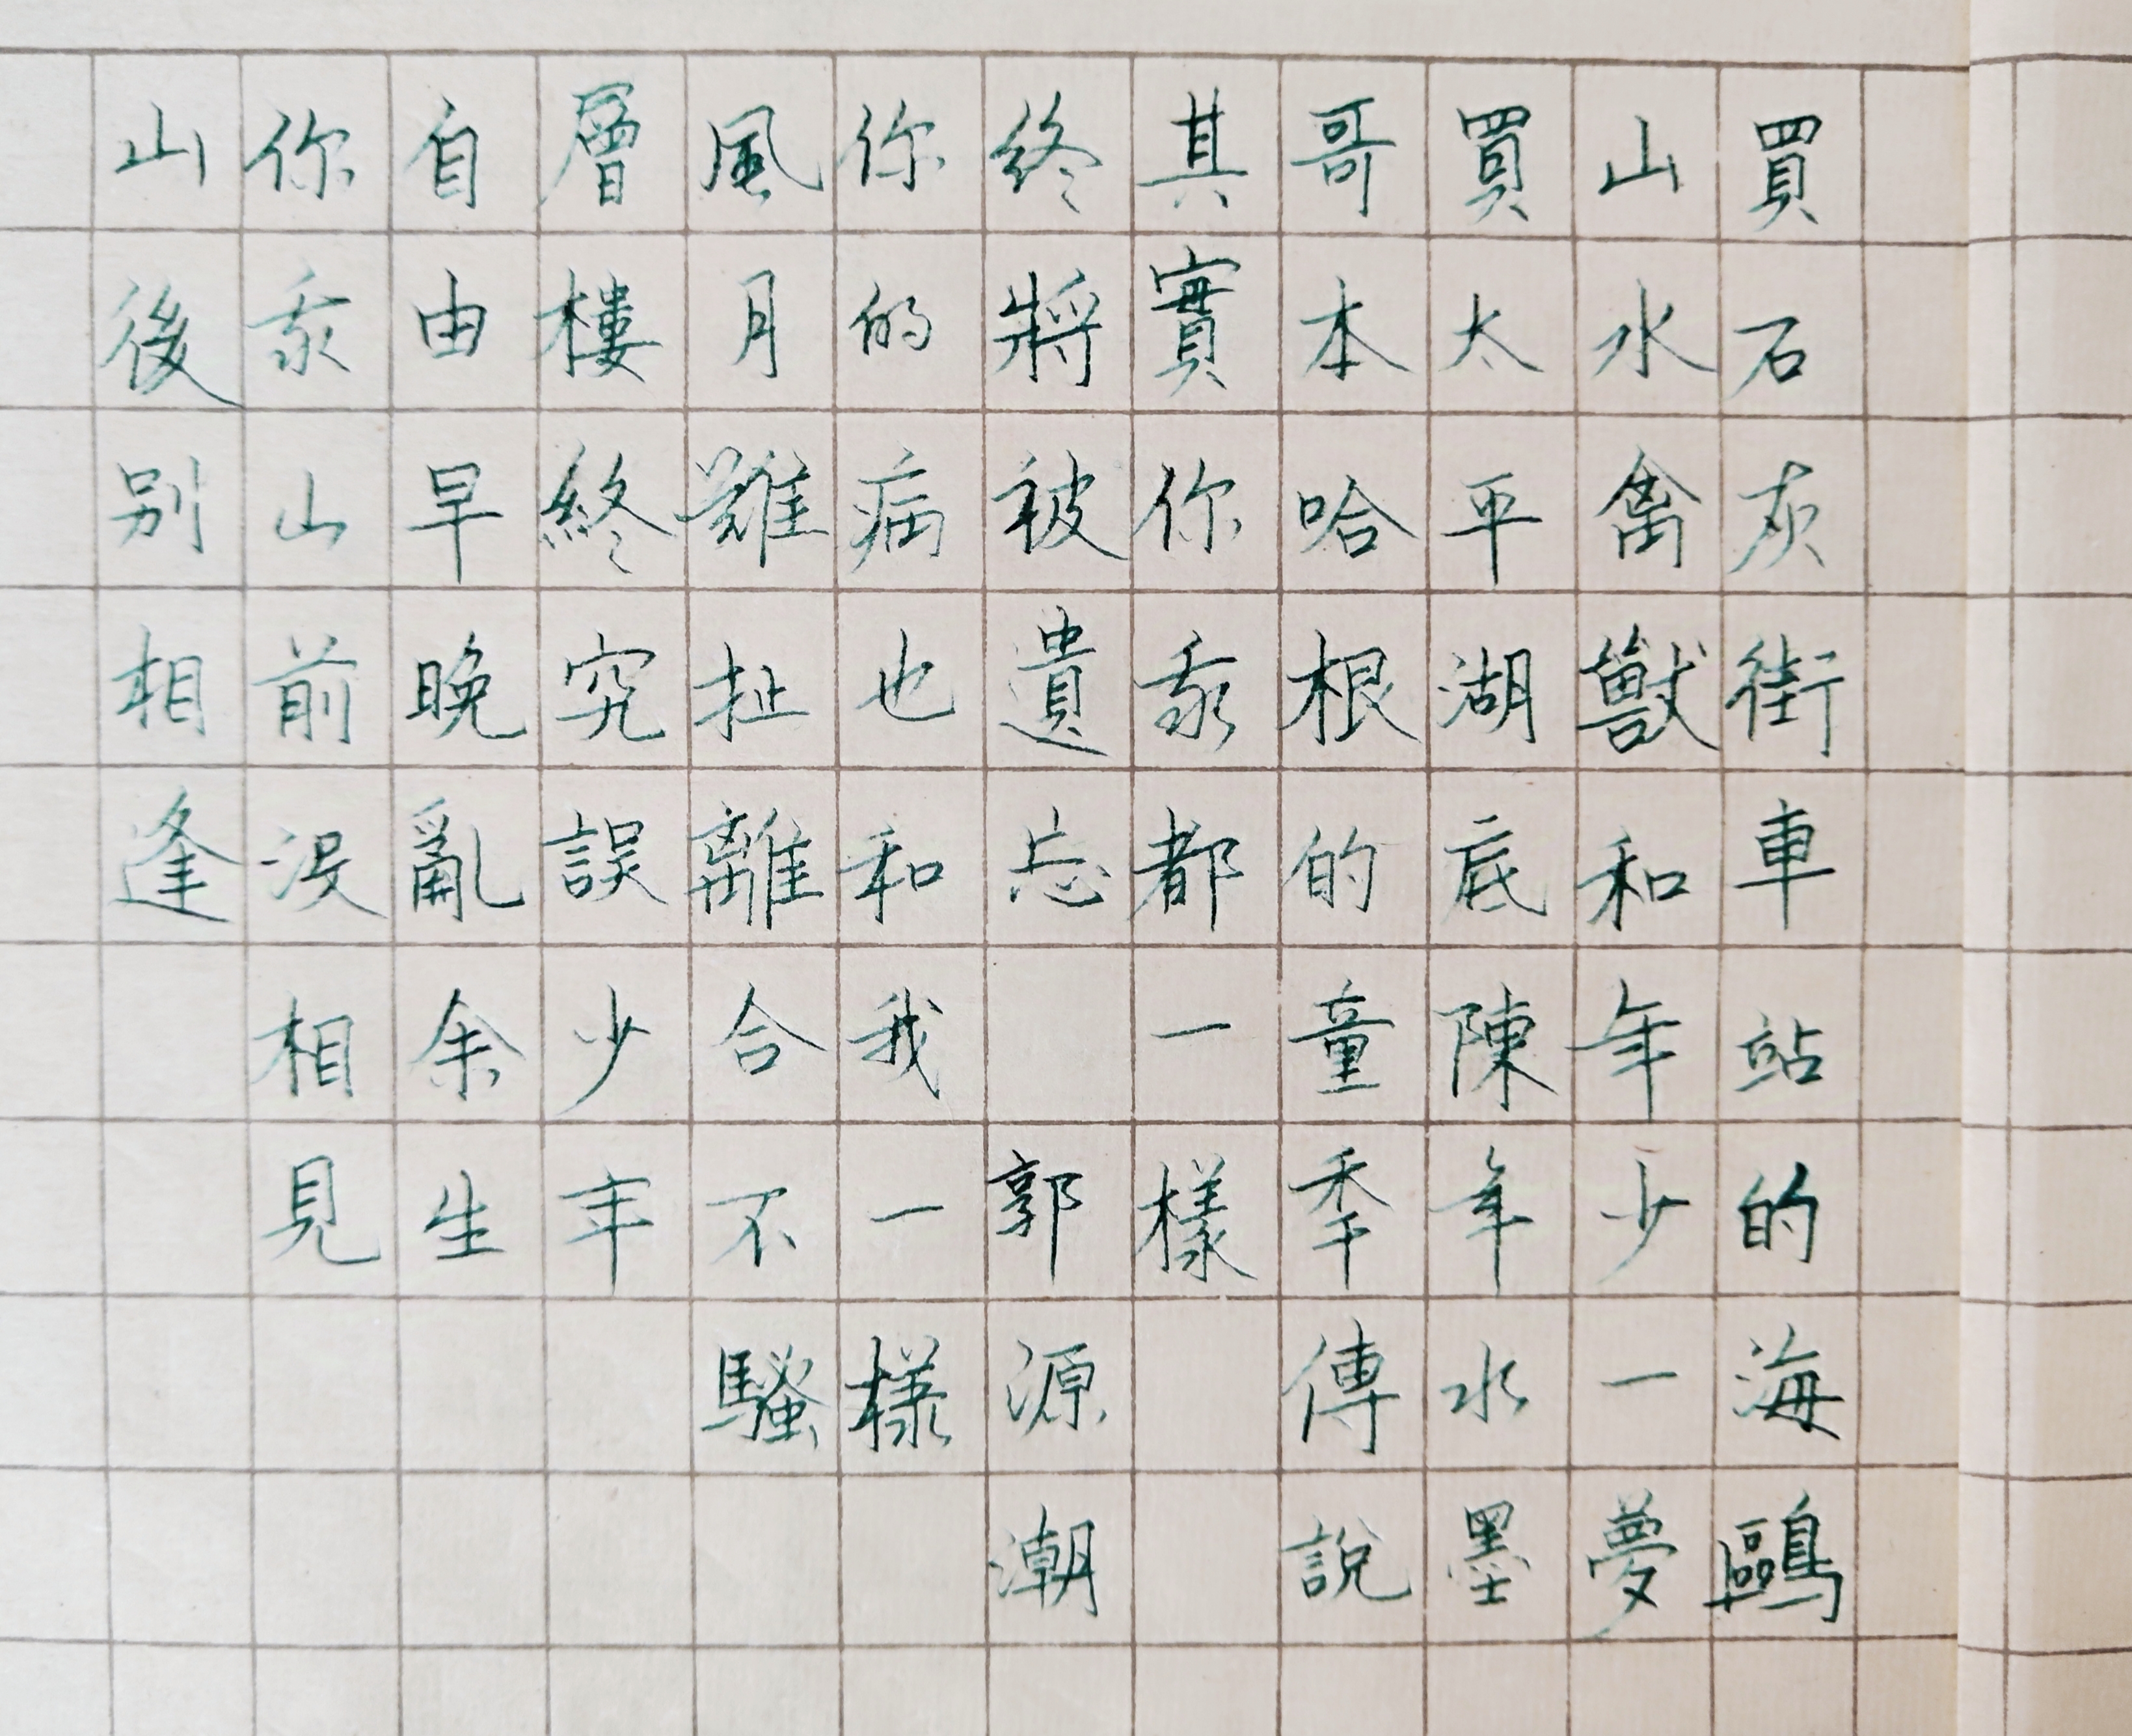 買石灰街車站的海鷗
山水禽獸和年少一夢
買太平湖底陳年水墨
哥本哈根的童秊傳說
其實你我都一樣
終將被遺忘 郭源潮
你的病也和我一樣
風月難扯離合不騷
層樓終究誤少年
自由早晚亂余生
你我山前沒相見
山後別相逢